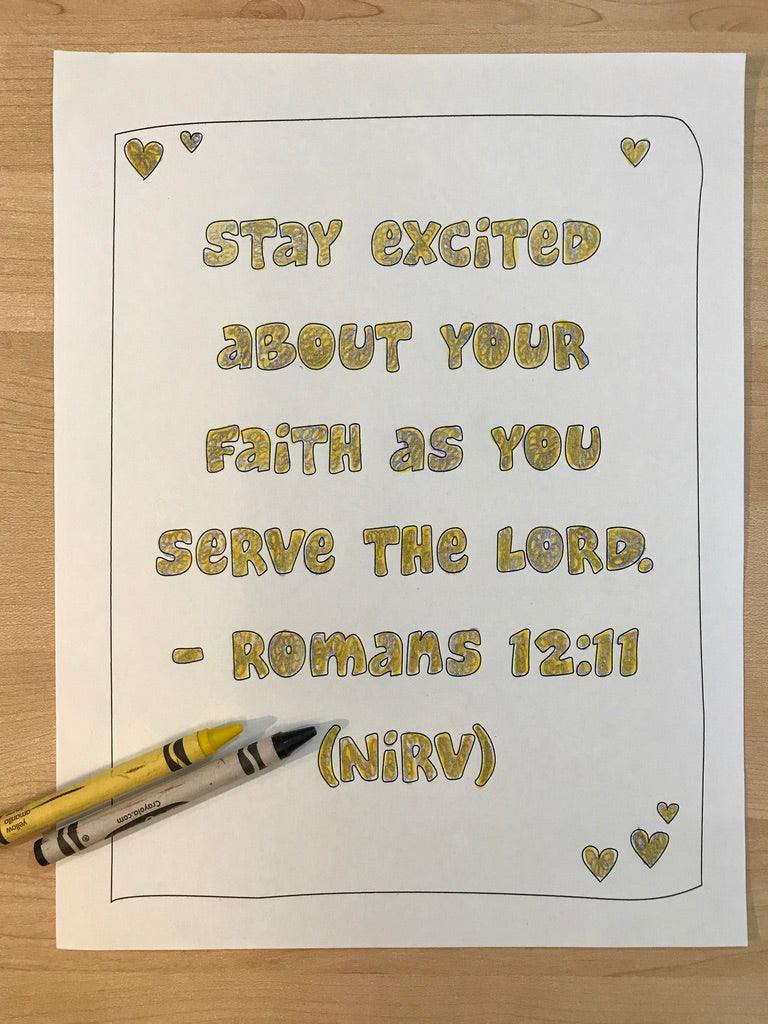 STaY eXCiTeD
aBOUT YOUR
FaiTH as YOU
SeRVe THe LORD.
- ROmans 12:11
(NiRV)
yellow
amarillo
Crayola.com
®